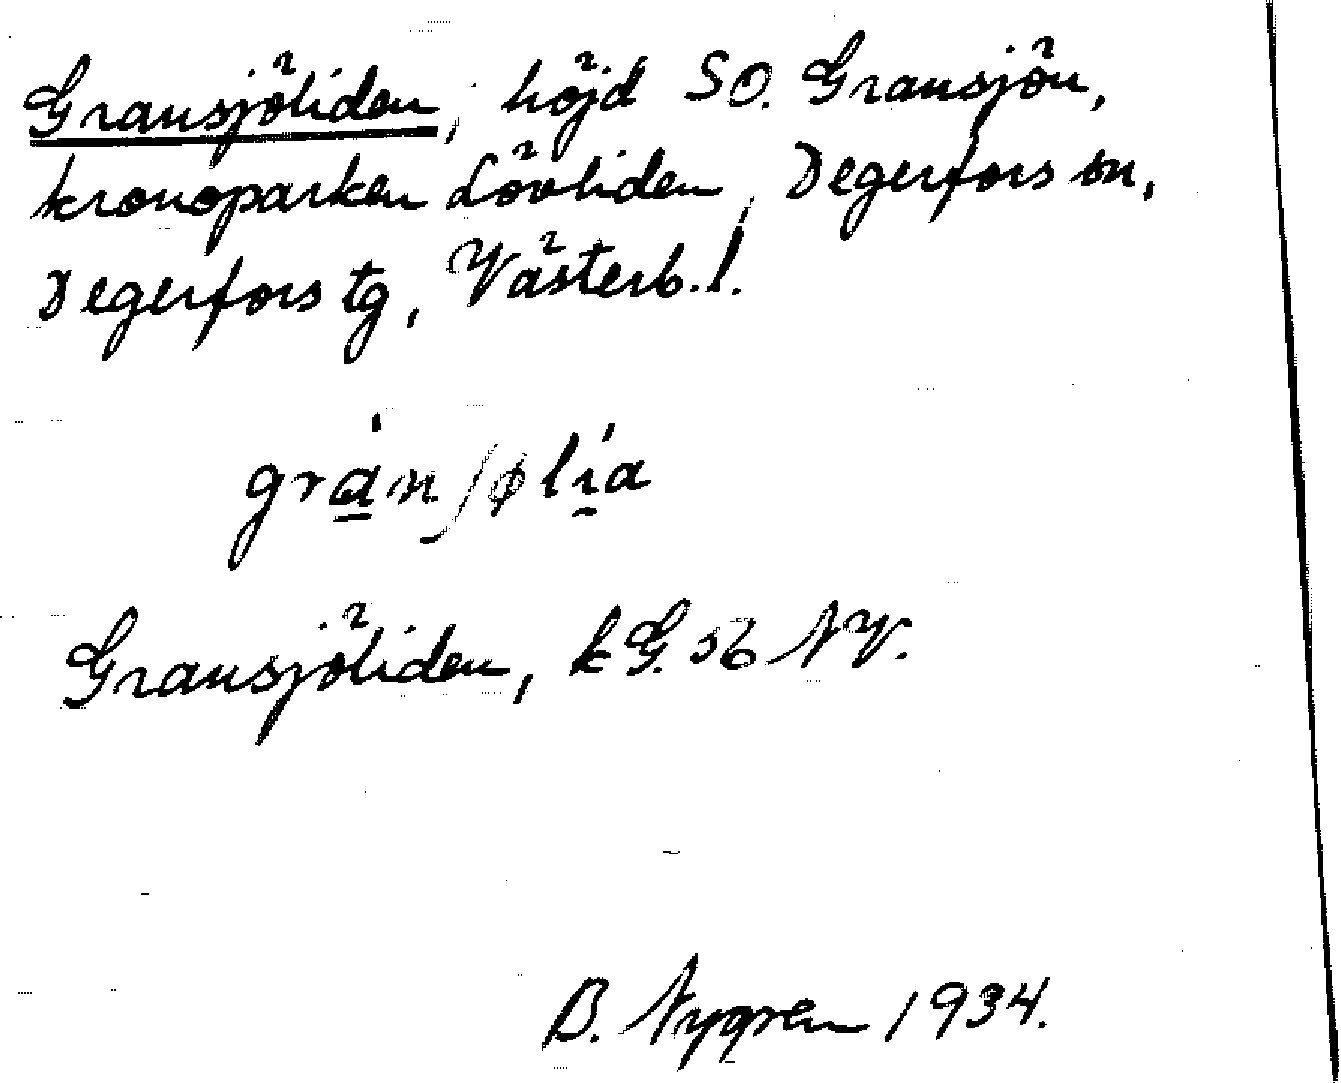 Gransjöliden, höjd SO. Gransjön,
kronoparken Lövliden, Degerfors sn,
Degerfors tg, Västerb. l.
gra̲̍n ʃølí̲a
Gransjöliden, kG. 56 NV.
B. Nygren 1934.